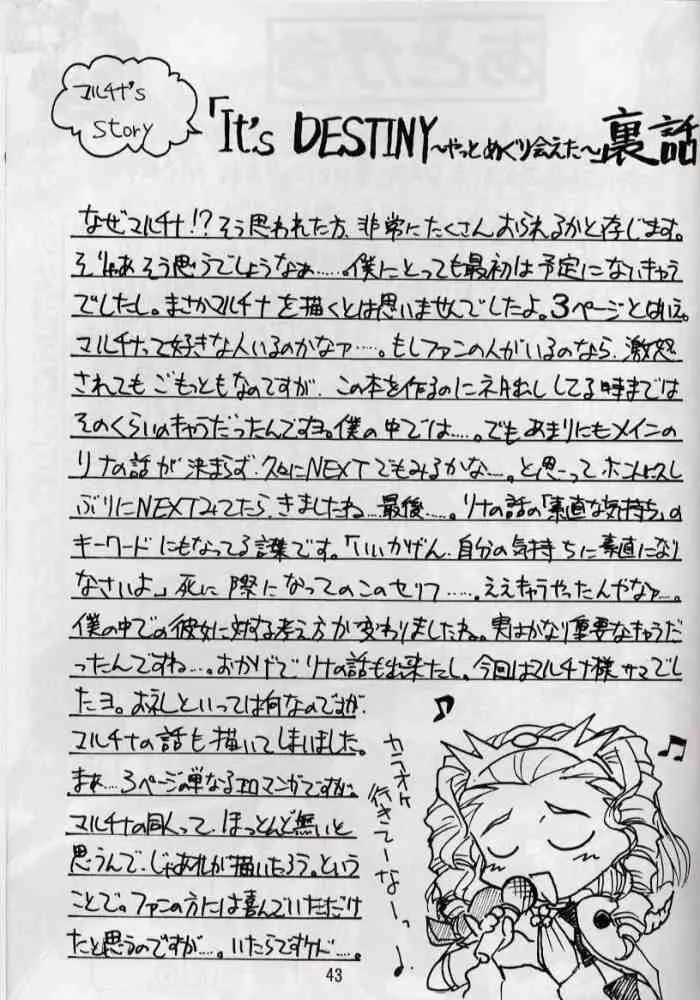 マルチナ's
Story
「It's DESTINY〜やっとめぐり会えた〜」裏話
なぜマルチナ!? そう思われた方、非常にたくさんおられるかと存じます。
そりゃあそう思うでしょうなぁ……。僕にとっても最初は予定にないキャラ
でしたし。まさかマルチナを描くとは思いませんでしたよ。3ページとはいえ。
マルチナって好きな人いるのかなァ……。もしファンの人がいるのなら、激怒
されてもごもっともなのですが、この本を作るのにネタ出ししてる時までは
そのくらいのキャラだったんですヨ。僕の中では……。でもあまりにもメインの
リナの話が決まらず、久々にNEXTでもみるかな……。と思ってホントに久し
ぶりにNEXTみてたら、きましたね…最後……。リナの話の「素直な気持ち」の
キーワードにもなってる言葉です。「いいかげん、自分の気持ちに素直になり
なさいよ」死に際になってのこのセリフ……。ええキャラやったんやなァ…。
僕の中での彼女に対する考え方が変わりましたね。実はかなり重要なキャラだ
ったんですね…。おかげでリナの話も出来たし。今回はマルチナ様サマでし
たヨ。お礼といっては何なのですが、
マルチナの話も描いてしまいました。
まぁ…3ページの単なるエロマンガですが。
マルチナの同人って、ほっとんど無いと
思うんで、じゃあオレが描いたろう。という
ことで。ファンの方には喜んでいただけ
たと思うのですが……。いたらですケド……。
カラオケ
行きてーなーっ
43